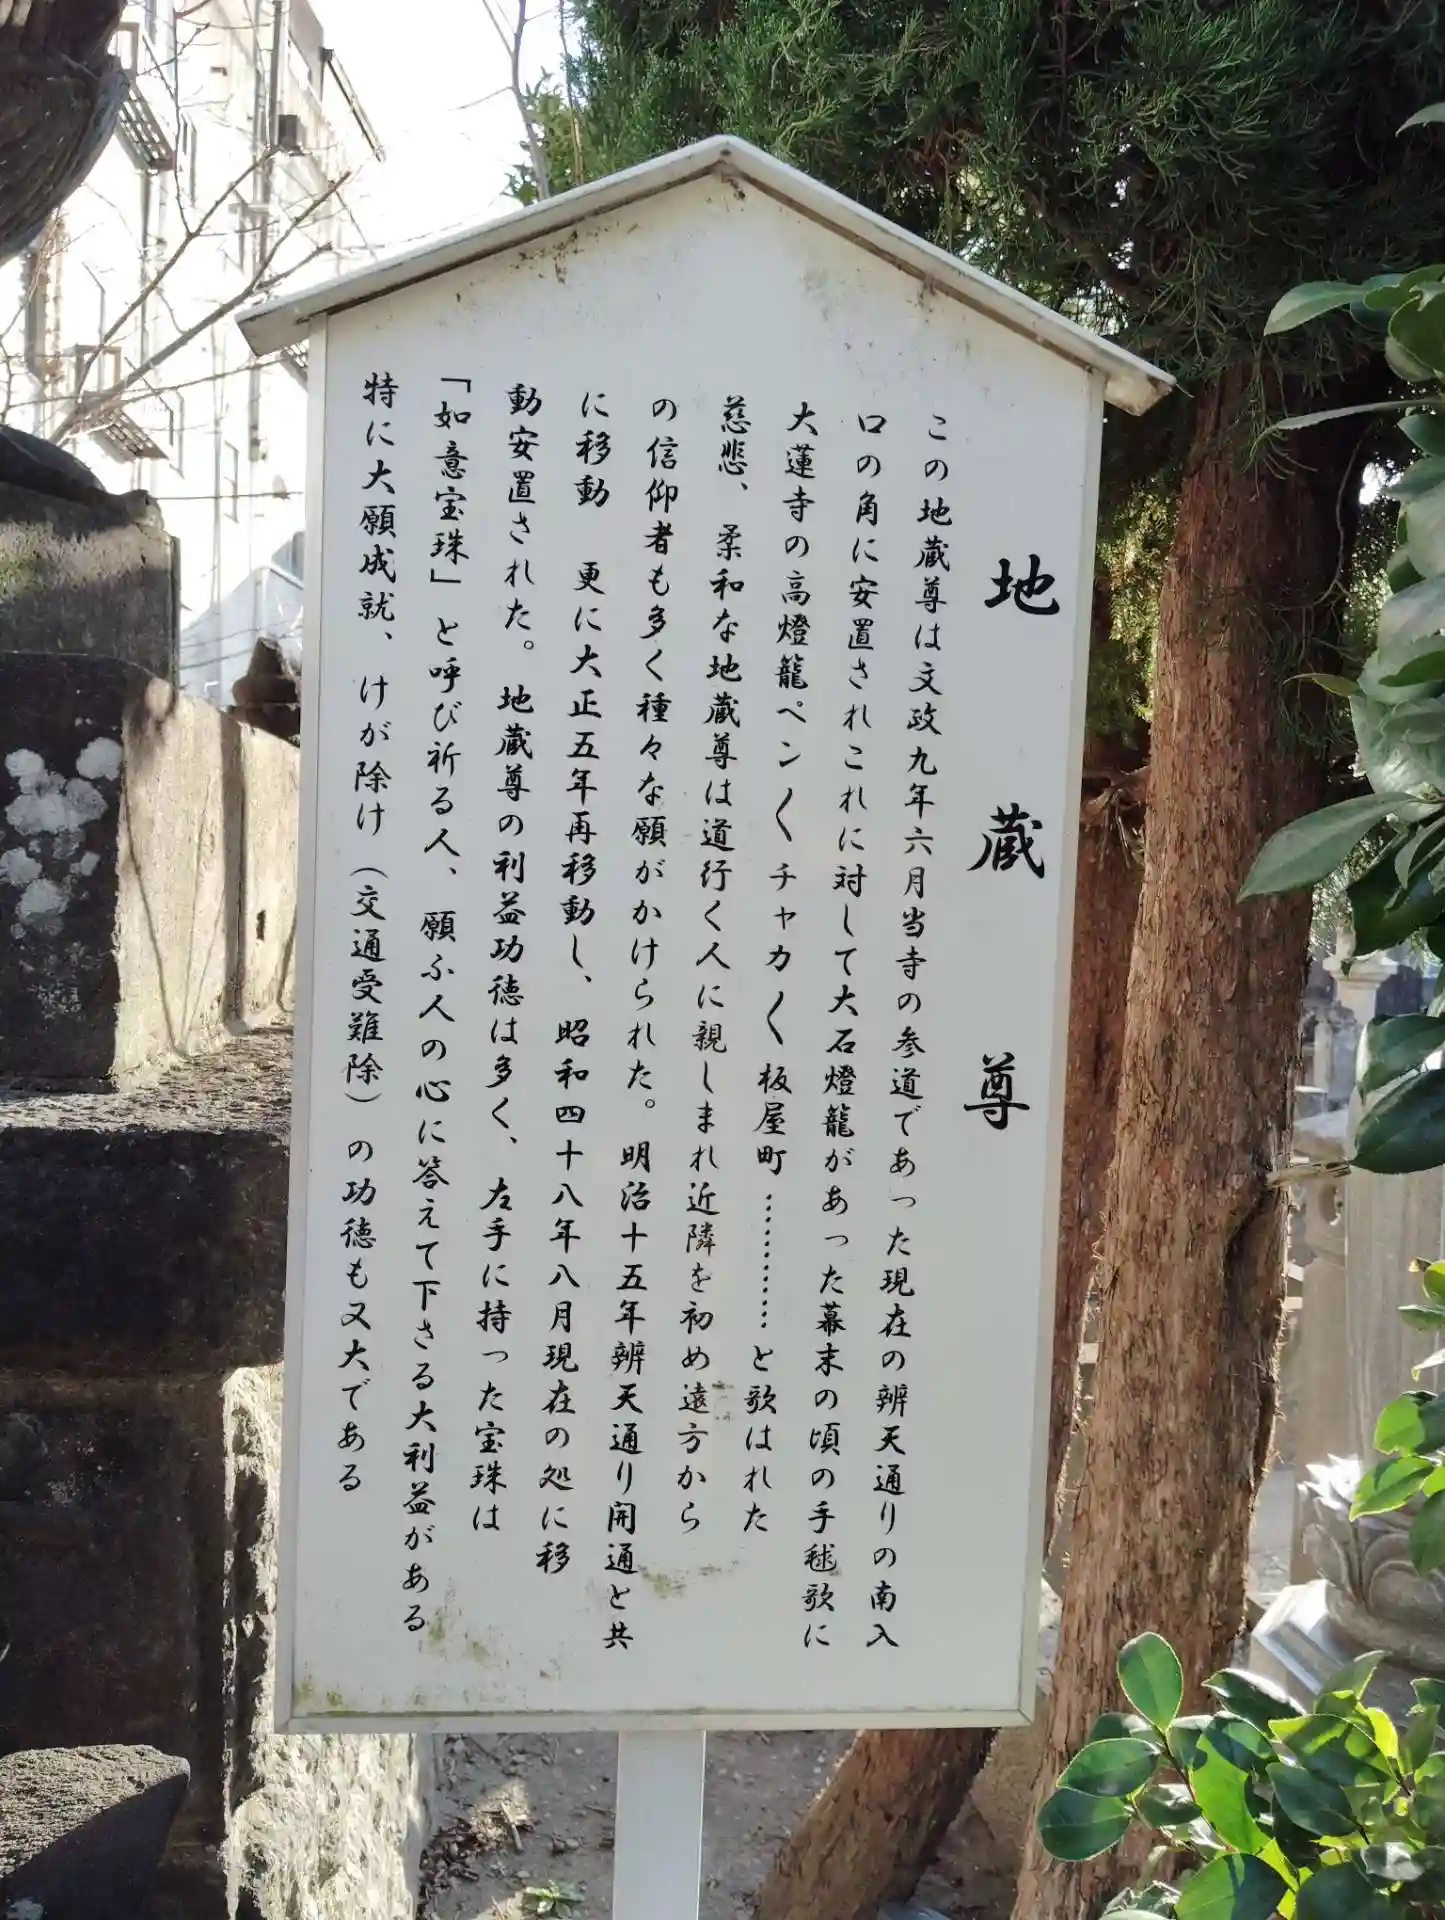 地蔵尊
この地蔵尊は文政九年六月当寺の参道であった現在の辨天通りの南入
口の角に安置されこれに対して大石燈籠があった幕末の頃の手毬歌に
大蓮寺の高燈籠ペン〱チャカ〱板屋町…………と歌はれた
慈悲、柔和な地蔵尊は道行く人に親しまれ近隣を初め遠方から
の信仰者も多く種々な願がかけられた。明治十五年辨天通り開通と共
に移動 更に大正五年再移動し、昭和四十八年八月現在の処に移
動安置された。地蔵尊の利益功徳は多く、左手に持った宝珠は
「如意宝珠」と呼び祈る人、願ふ人の心に答えて下さる大利益がある
特に大願成就、けが除け(交通受難除)の功徳も又大である